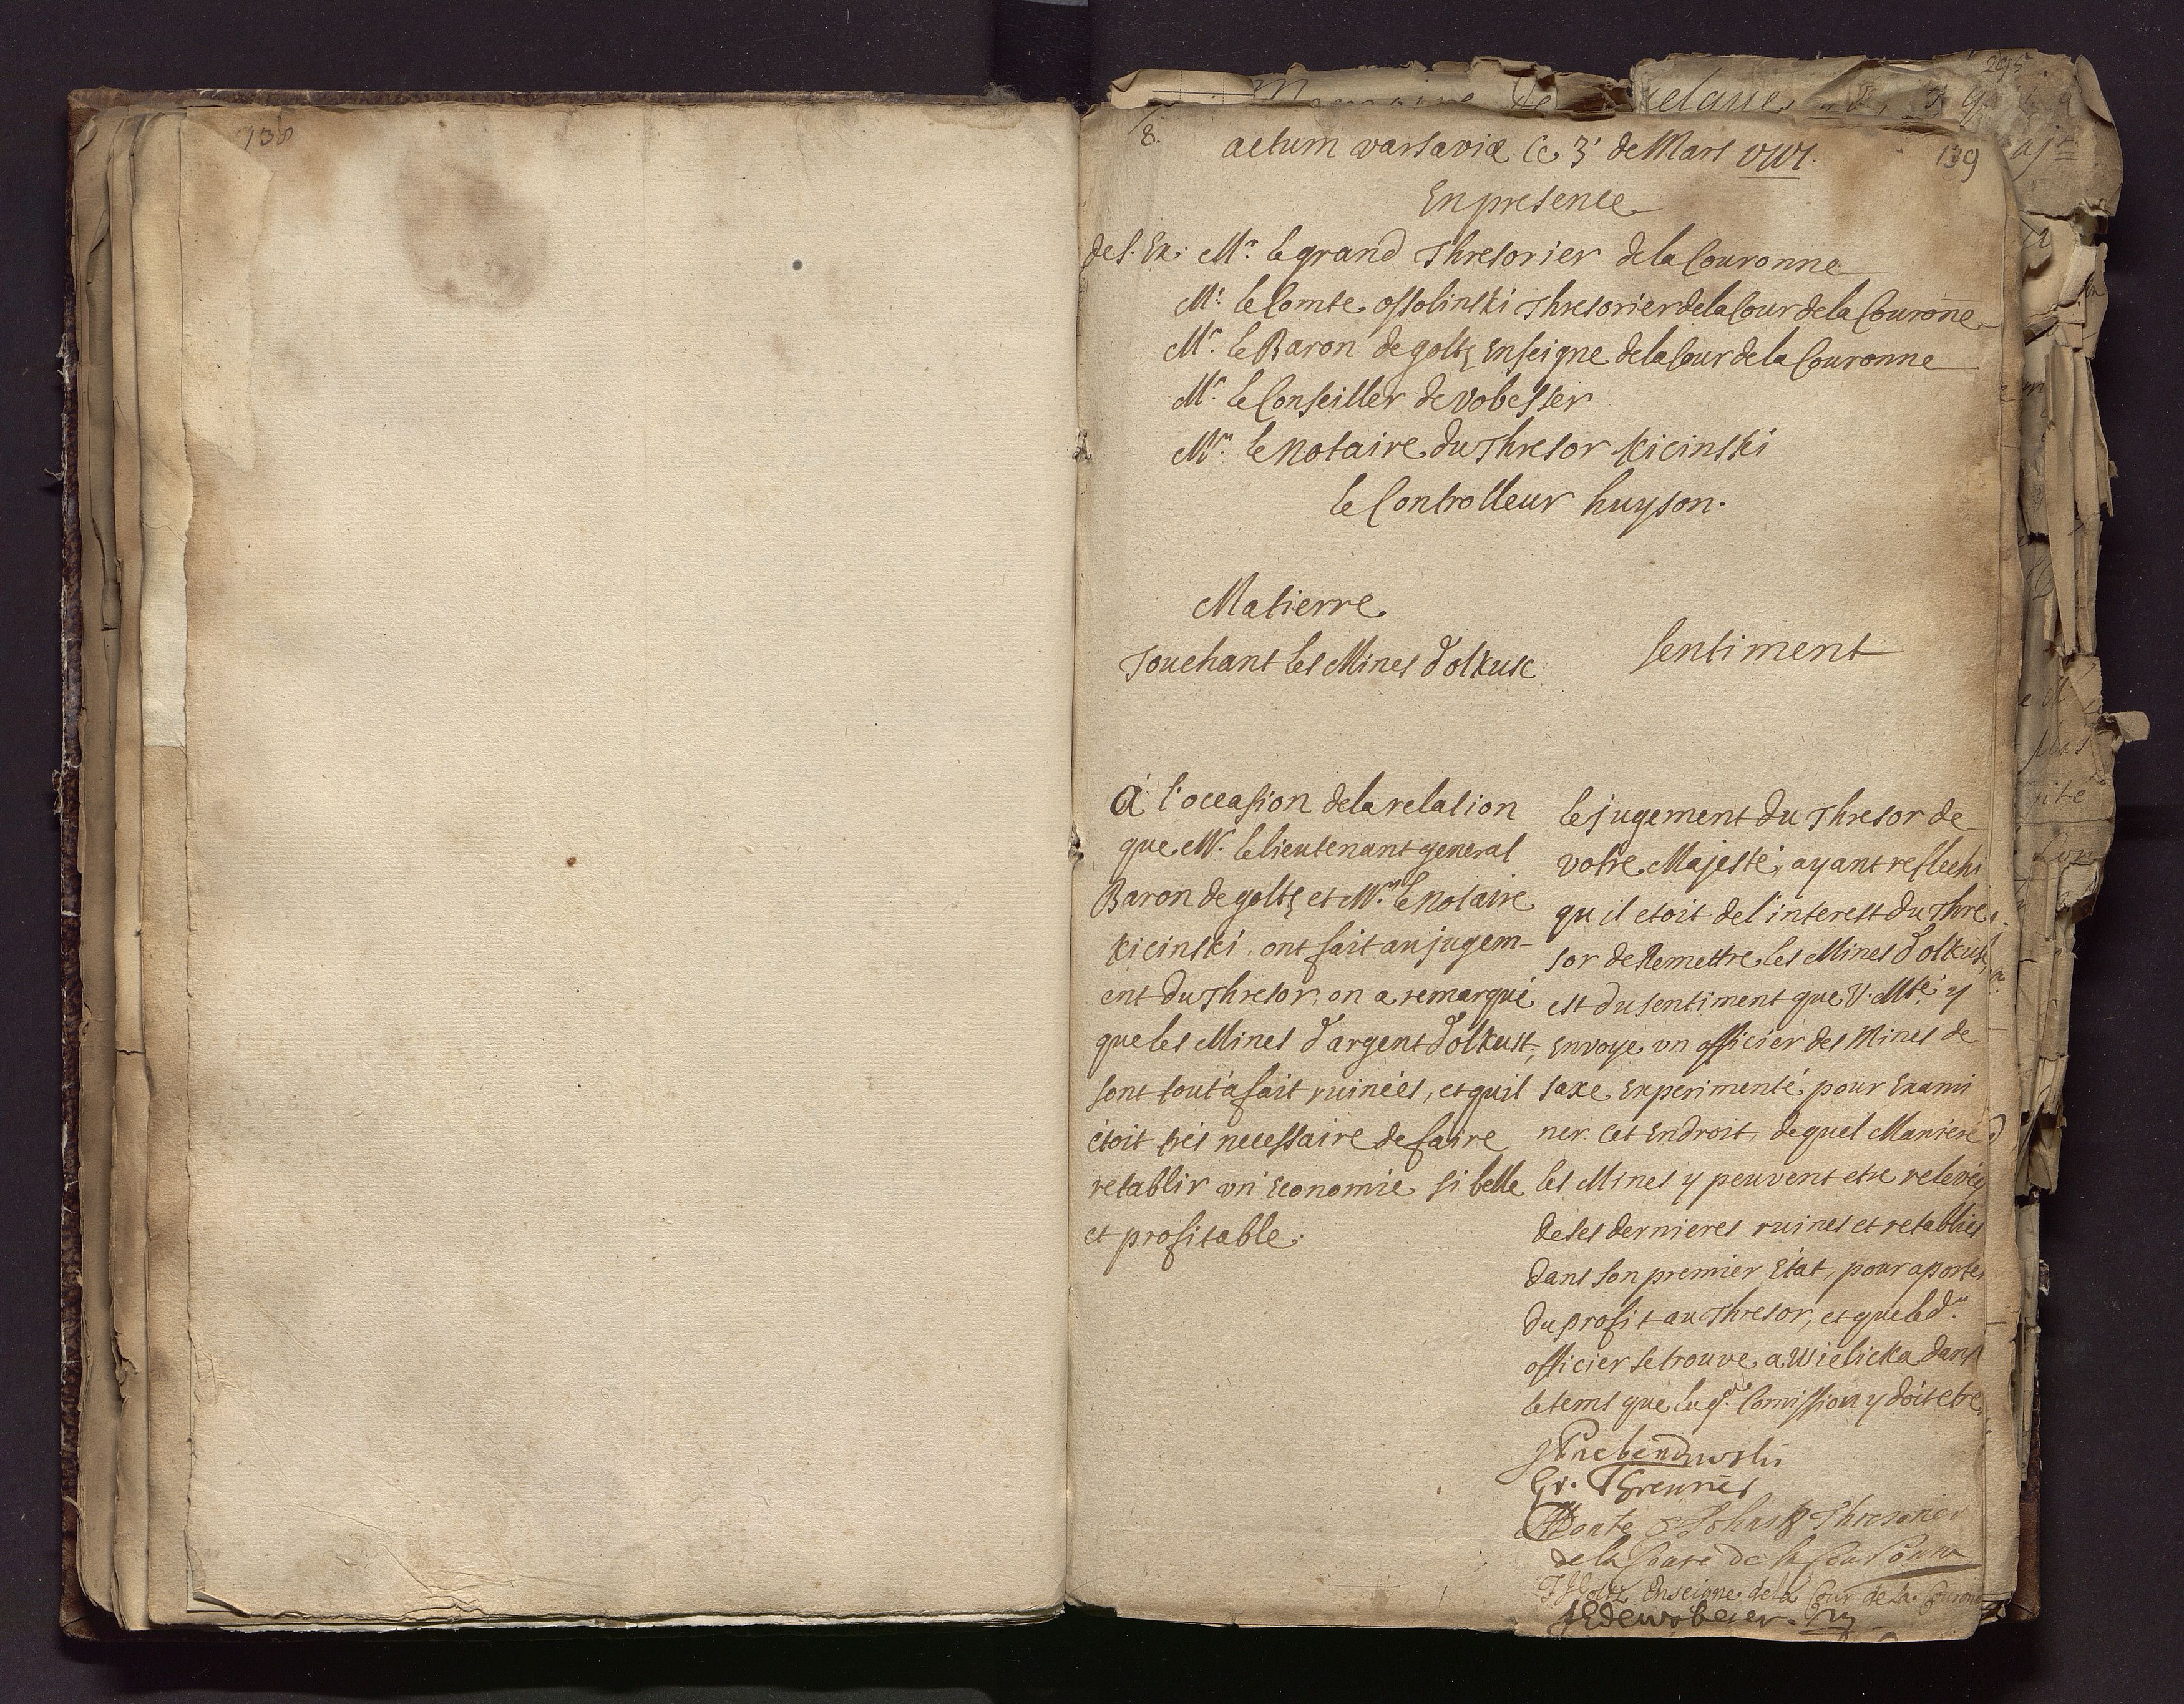 138
8.
actum warsaviæ le 3' de Mars
139
En presence
de S. Ex: Mr. le grand Thresorier de la Couronne
Mr. le Comte Ossolinski Thresorier de la Cour de la Couronne
Mr. le Baron de goltz Enseigne de la Cour de la Couronne
Mr. le Conseiller de Vobesser
Mr. le Notaire du Thresor Kicinski
le Controlleur huyson.
Matierre
Touchant les Mines d'olkusc
Sentiment
à l'occasion de la relation
que Mr. le lieutenant general
Baron de goltz et Mr. le Notaire
Kicinski. ont fait au jugem-
ent du Thresor, on a remarqué
que les Mines d'argent d'olkust,
sont tout'a fait ruinées, et quil
étoit trés necessaire de faire
retablir un' Economie si belle
et profitable.
le jugement du Thresor de
votre Majesté, ayant reflechi
qu il etoit de l'interest du Thre
sor de Remettre les Mines d'olkusk,
est du sentiment que V. Mté y
envoye un officier des Mines de
saxe experimenté pour Exami
ner cet Endroit, de quel Maniere
les Mines y peuvent etre relevéz
de ses dernieres ruines et retablies
dans son premier Etat, pour aporter
du profit au Thresor, et que le d.
officier se trouve a Wielicka dans
le tems que la Comission y doit etre.
JPrebendowski
Gr. Thresories
Comte Ossolinski Thresorier
de la Cour de la Couronne
Goltz Enseigne de la Cour de la Couronne
295